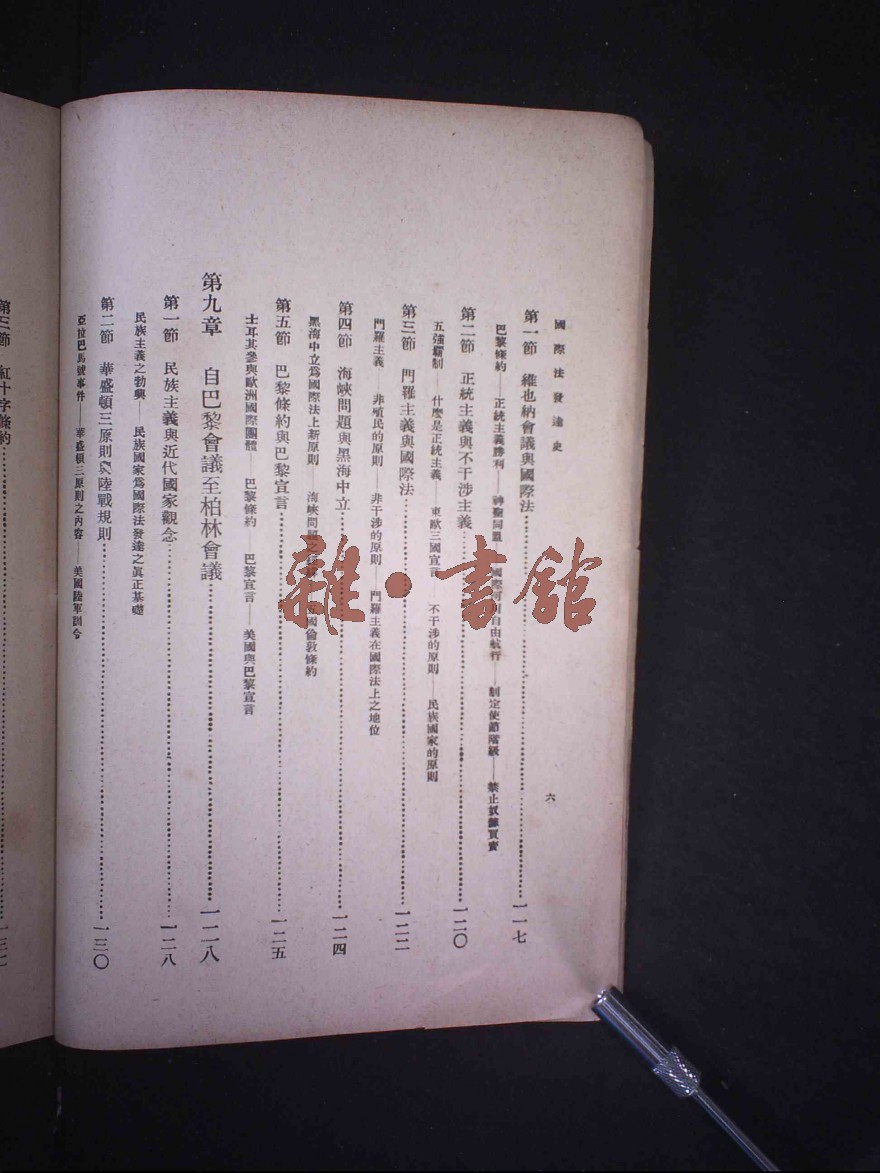 國際法發達史
六
第一節 維也納會議與國際法……一一七
巴黎條約——正統主義勝利——神聖同盟——國際河川自由航行——制定使節階級——禁止奴隸買賣
第二節 正統主義與不干涉主義……一二〇
五強霸制——什麼是正統主義——東歐三國宣言——不干涉的原則——民族國家的原則
第三節 門羅主義與國際法……一二二
門羅主義——非殖民的原則——非干涉的原則——門羅主義在國際法上之地位
第四節 海峽問題與黑海中立……一二四
黑海中立爲國際法上新原則——海峽問題之——國倫敦條約
第五節 巴黎條約與巴黎宣言……一二五
土耳其參與歐洲國際團體——巴黎條約——巴黎宣言——美國與巴黎宣言
第九章 自巴黎會議至柏林會議……一二八
第一節 民族主義與近代國家觀念……一二八
民族主義之勃興——民族國家爲國際法發達之眞正基礎
第二節 華盛頓三原則與陸戰規則……一三〇
亞拉巴馬號事件——華盛頓三原則之內容——美國陸軍訓令
第三節 紅十字條約……一三二
雜·書館